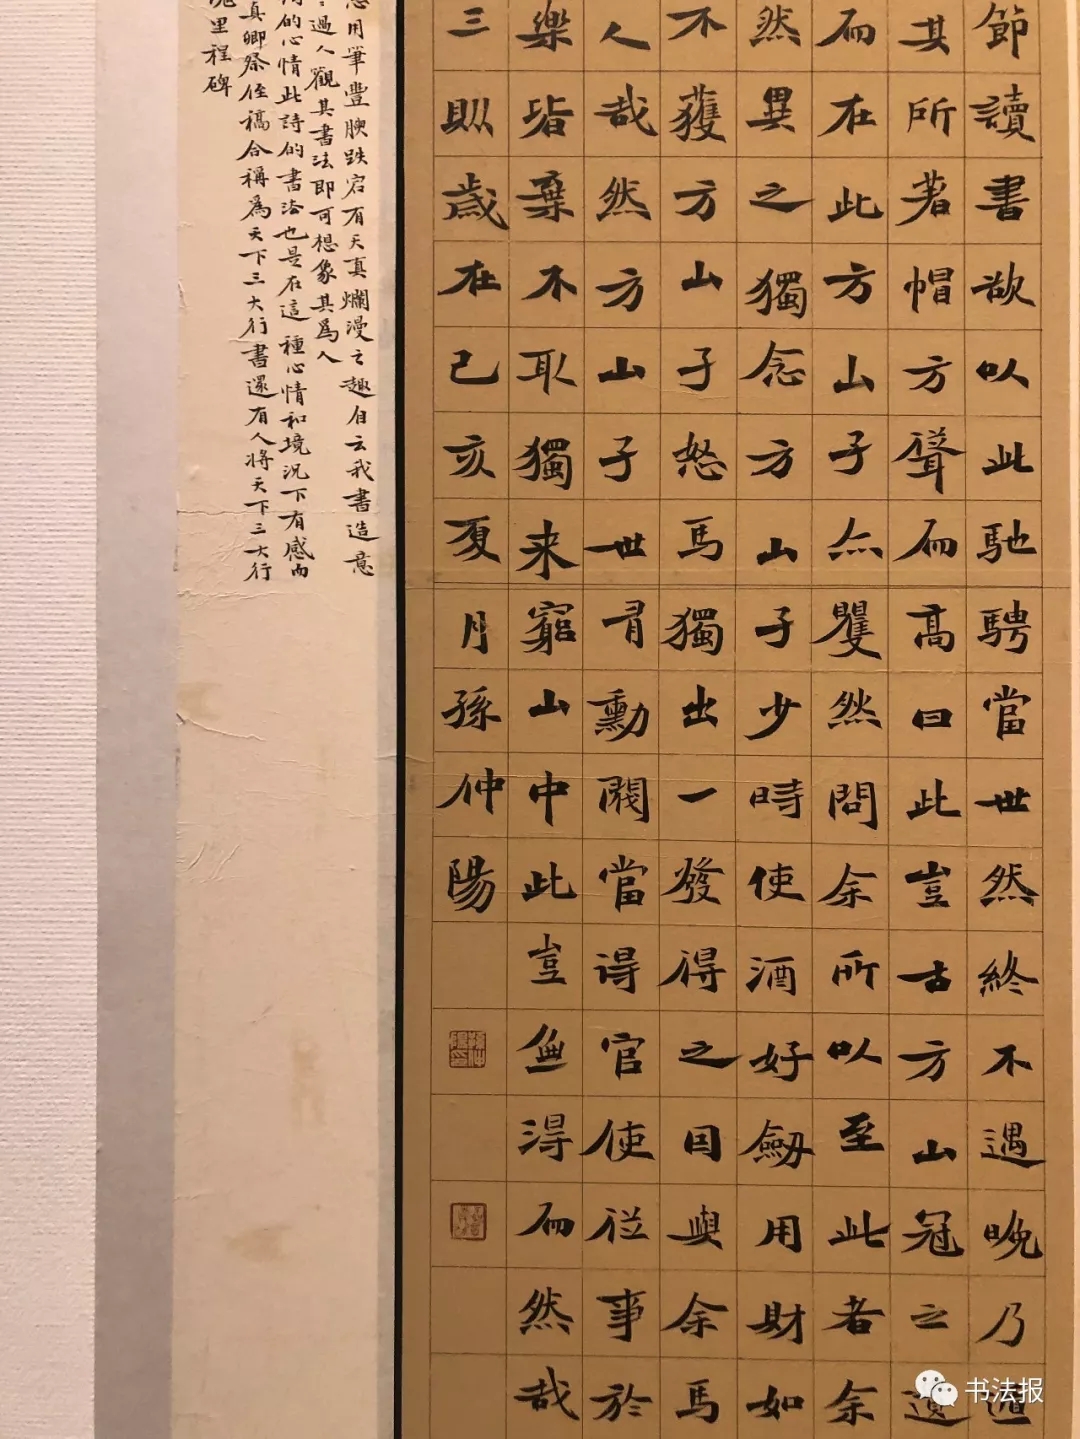 節讀書欲以此馳騁當世然終不遇晚乃遁
其所著帽方聳而高曰此豈古方山冠之遺
而在此方山子亦矍然問余所以至此者余
然異之獨念方山子少時使酒好劒用財如
不獲方山子怒馬獨出一發得之因與余馬
人哉然方山子世有勳閥當得官使從事於
樂皆棄不取獨来窮山中此豈無得而然哉
三則歲在己亥夏月孫仲陽
用筆豐腴跌宕有天真爛漫之趣自云我書造意
過人觀其書法即可想象其爲人
的心情此詩的書法也是在這種心情和境況下有感而
真卿祭侄稿合稱爲天下三大行書還有人將天下三大行
里程碑
书法报